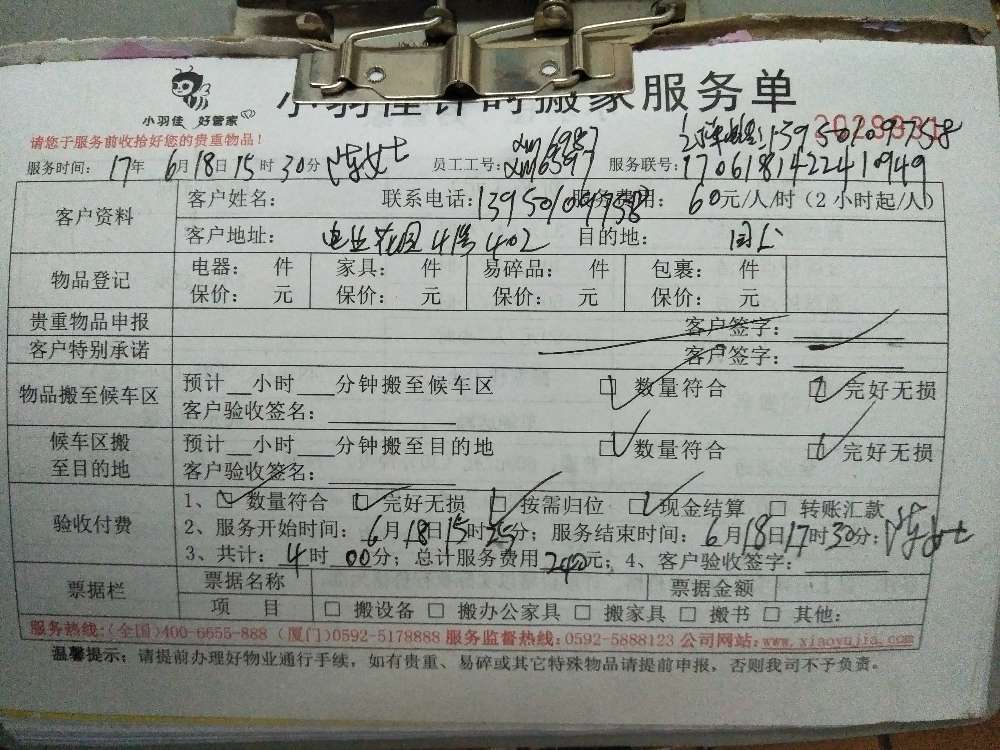 小羽佳 好管家
小羽佳计时搬家服务单
请您于服务前收拾好您的贵重物品！
13950109758
服务时间：17年 6月18日15时30分 陈女士 员工工号： 服务联号：1706181422410949
客户资料
客户姓名： 联系电话：13950109758 服务费用：60元/人/时（2小时起/人）
客户地址：电业花园4号402 目的地：同上
物品登记
电器： 件 家具： 件 易碎品： 件 包裹： 件
保价： 元 保价： 元 保价： 元 保价： 元
贵重物品申报 客户签字：
客户特别承诺 客户签字：
物品搬至候车区
预计__小时___分钟搬至候车区 □数量符合 □完好无损
客户验收签名：
候车区搬至目的地
预计__小时___分钟搬至目的地 □数量符合 □完好无损
客户验收签名：
验收付费
1、□数量符合 □完好无损 □按需归位 □现金结算 □转账汇款
2、服务开始时间：6月18日15时25分；服务结束时间：6月18日17时30分；陈女士
3、共计：4时00分；总计服务费用240元；4、客户验收签字：
票据栏
票据名称 票据金额
项 目 □搬设备 □搬办公家具 □搬家具 □搬书 □其他:
服务热线：(全国)400-6655-888 (厦门)0592-5178888 服务监督热线：0592-5888123 公司网站：www.xiaoyujia.com
温馨提示：请提前办理好物业通行手续，如有贵重、易碎或其它特殊物品请提前申报，否则我司不予负责。